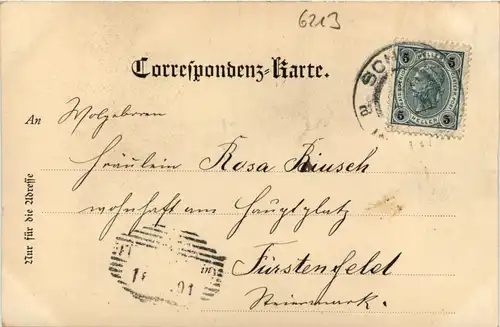 6213
Correspondenz-Karte.
SCH
5 5
HELLER
5 5
An Wolgeboren
Fräulein Rosa Riusch
wohnhaft am Hauptplatz
in Fürstenfeld
Steiermark.
Nur für die Adresse
01